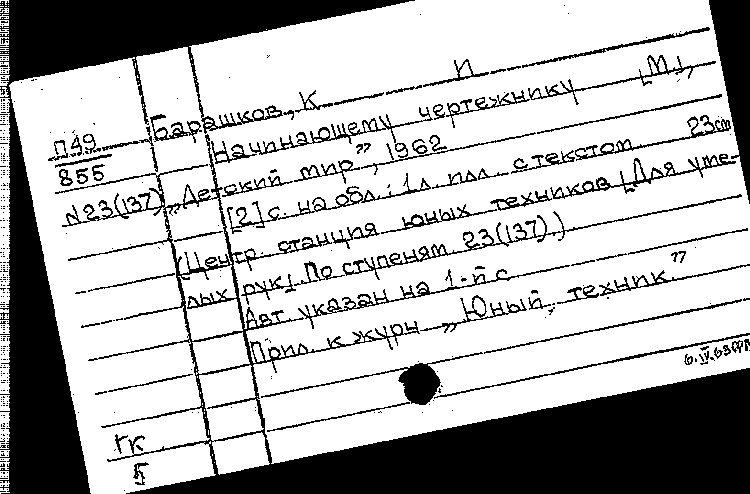 П49
855
№23(137)
Барашков, К П
Начинающему чертежнику [М.],
„Детский мир”, 1962
[2] с. на обл.: 1 л. илл. с текстом 23cm
(Центр. станция юных техников [Для уме-
лых рук]. По ступеням 23(137).)
Авт. указан на 1-й с
Прил. к журн „Юный техник.”
6.IV.63
ГК
5